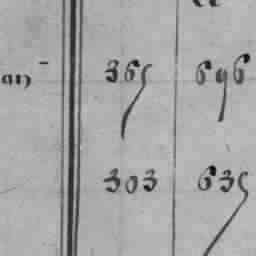 365 696
303 635